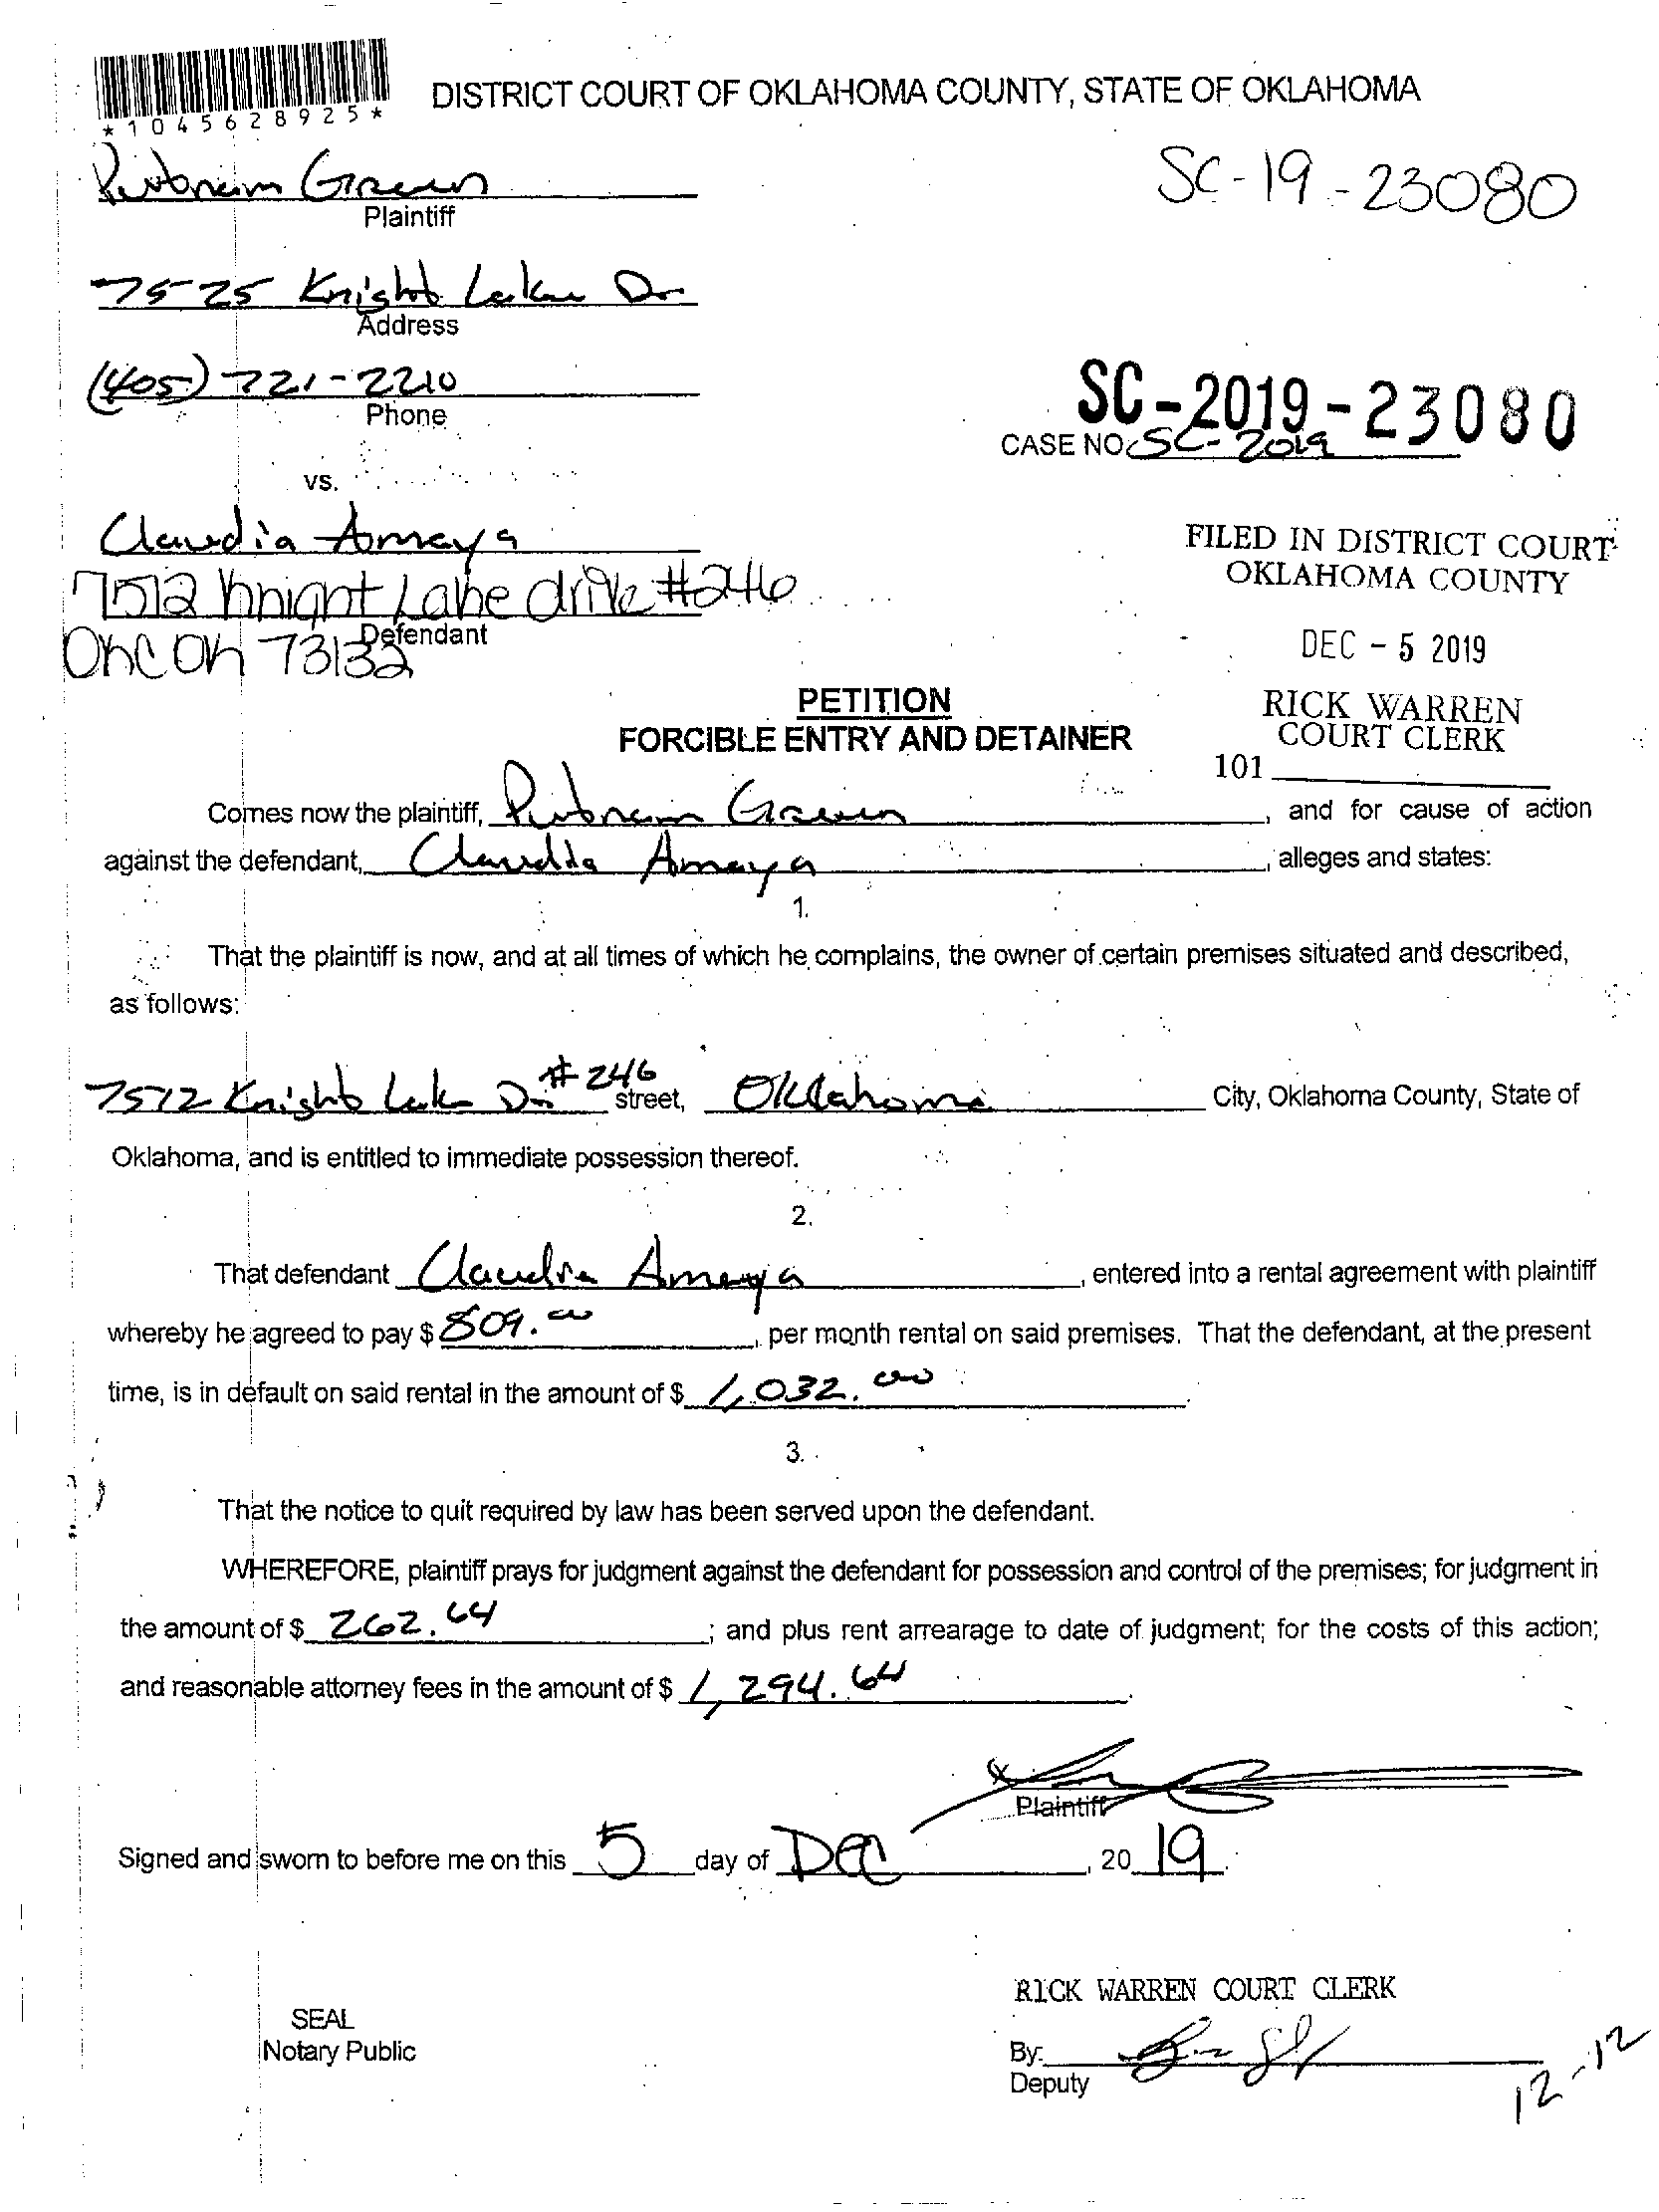 *1045628925*
DISTRICT COURT OF OKLAHOMA COUNTY, STATE OF OKLAHOMA
Putnam Green
Plaintiff
SC-19-23080
7525 Knight Lake Dr
Address
(405) 721-2210
Phone
SC-2019-23080
CASE NO. SC-2019
vs.
Claudia Amaya
7512 Knight Lake drive #246
Defendant
OKC OK 73132
FILED IN DISTRICT COURT
OKLAHOMA COUNTY
DEC - 5 2019
RICK WARREN
COURT CLERK
101
PETITION
FORCIBLE ENTRY AND DETAINER
Comes now the plaintiff, Putnam Green, and for cause of action
against the defendant, Claudia Amaya, alleges and states:
1.
That the plaintiff is now, and at all times of which he complains, the owner of certain premises situated and described,
as follows:
7512 Knight Lake Dr #246 street, Oklahoma City, Oklahoma County, State of
Oklahoma, and is entitled to immediate possession thereof.
2.
That defendant Claudia Amaya, entered into a rental agreement with plaintiff
whereby he agreed to pay $ 809.00, per month rental on said premises. That the defendant, at the present
time, is in default on said rental in the amount of $ 1,032.00.
3.
That the notice to quit required by law has been served upon the defendant.
WHEREFORE, plaintiff prays for judgment against the defendant for possession and control of the premises; for judgment in
the amount of $ 262.64; and plus rent arrearage to date of judgment; for the costs of this action;
and reasonable attorney fees in the amount of $ 1,294.64.
Plaintiff
Signed and sworn to before me on this 5 day of Dec, 2019.
RICK WARREN COURT CLERK
SEAL
Notary Public
By:
Deputy
12-12